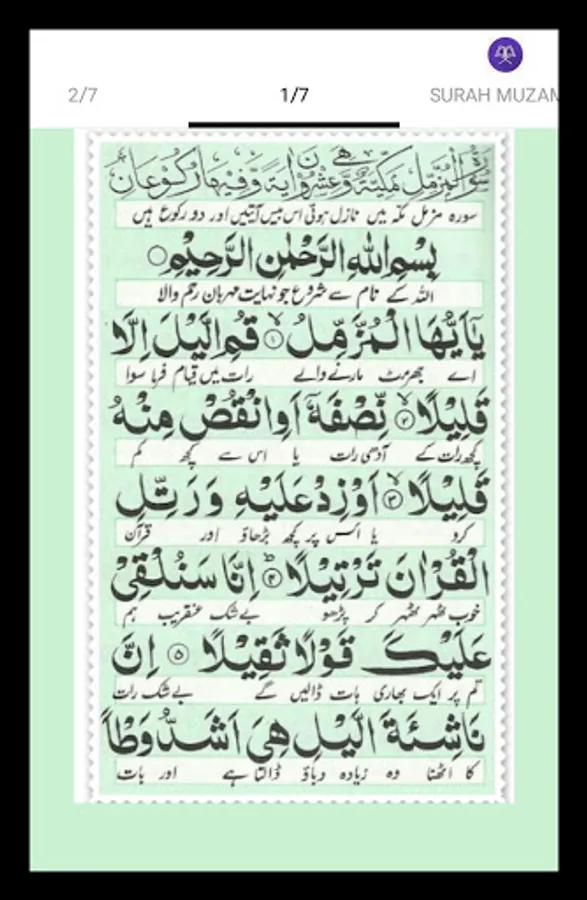 2/7 1/7 SURAH MUZAM
سُوْرَةُ الْمُزَّمِّلِ مَكِّيَّةٌ وَّهِيَ عِشْرُوْنَ اٰيَةً وَّفِيْهَا رُكُوْعَانِ
سورہ مزمل مکہ میں نازل ہوئی اس میں بیس آیتیں اور دو رکوع ہیں
بِسْمِ اللهِ الرَّحْمٰنِ الرَّحِيْمِ ○
اللہ کے نام سے شروع جو نہایت مہربان رحم والا
يٰۤاَيُّهَا الْمُزَّمِّلُ ۙ﴿۱﴾ قُمِ الَّيْلَ اِلَّا
اے جھرمٹ مارنے والے رات میں قیام فرما سوا
قَلِيْلًا ۙ﴿۲﴾ نِّصْفَهٗۤ اَوِ انْقُصْ مِنْهُ
کچھ رات کے آدھی رات یا اس سے کچھ کم
قَلِيْلًا ۙ﴿۳﴾ اَوْ زِدْ عَلَيْهِ وَ رَتِّلِ
کرو یا اس پر کچھ بڑھاؤ اور قرآن
الْقُرْاٰنَ تَرْتِيْلًا ؕ﴿۴﴾ اِنَّا سَنُلْقِيْ
خوب ٹھہر ٹھہر کر پڑھو بے شک عنقریب ہم
عَلَيْكَ قَوْلًا ثَقِيْلًا ﴿۵﴾ اِنَّ
تم پر ایک بھاری بات ڈالیں گے بے شک رات
نَاشِئَةَ الَّيْلِ هِيَ اَشَدُّ وَطْاً
کا اٹھنا وہ زیادہ دباؤ ڈالتا ہے اور بات